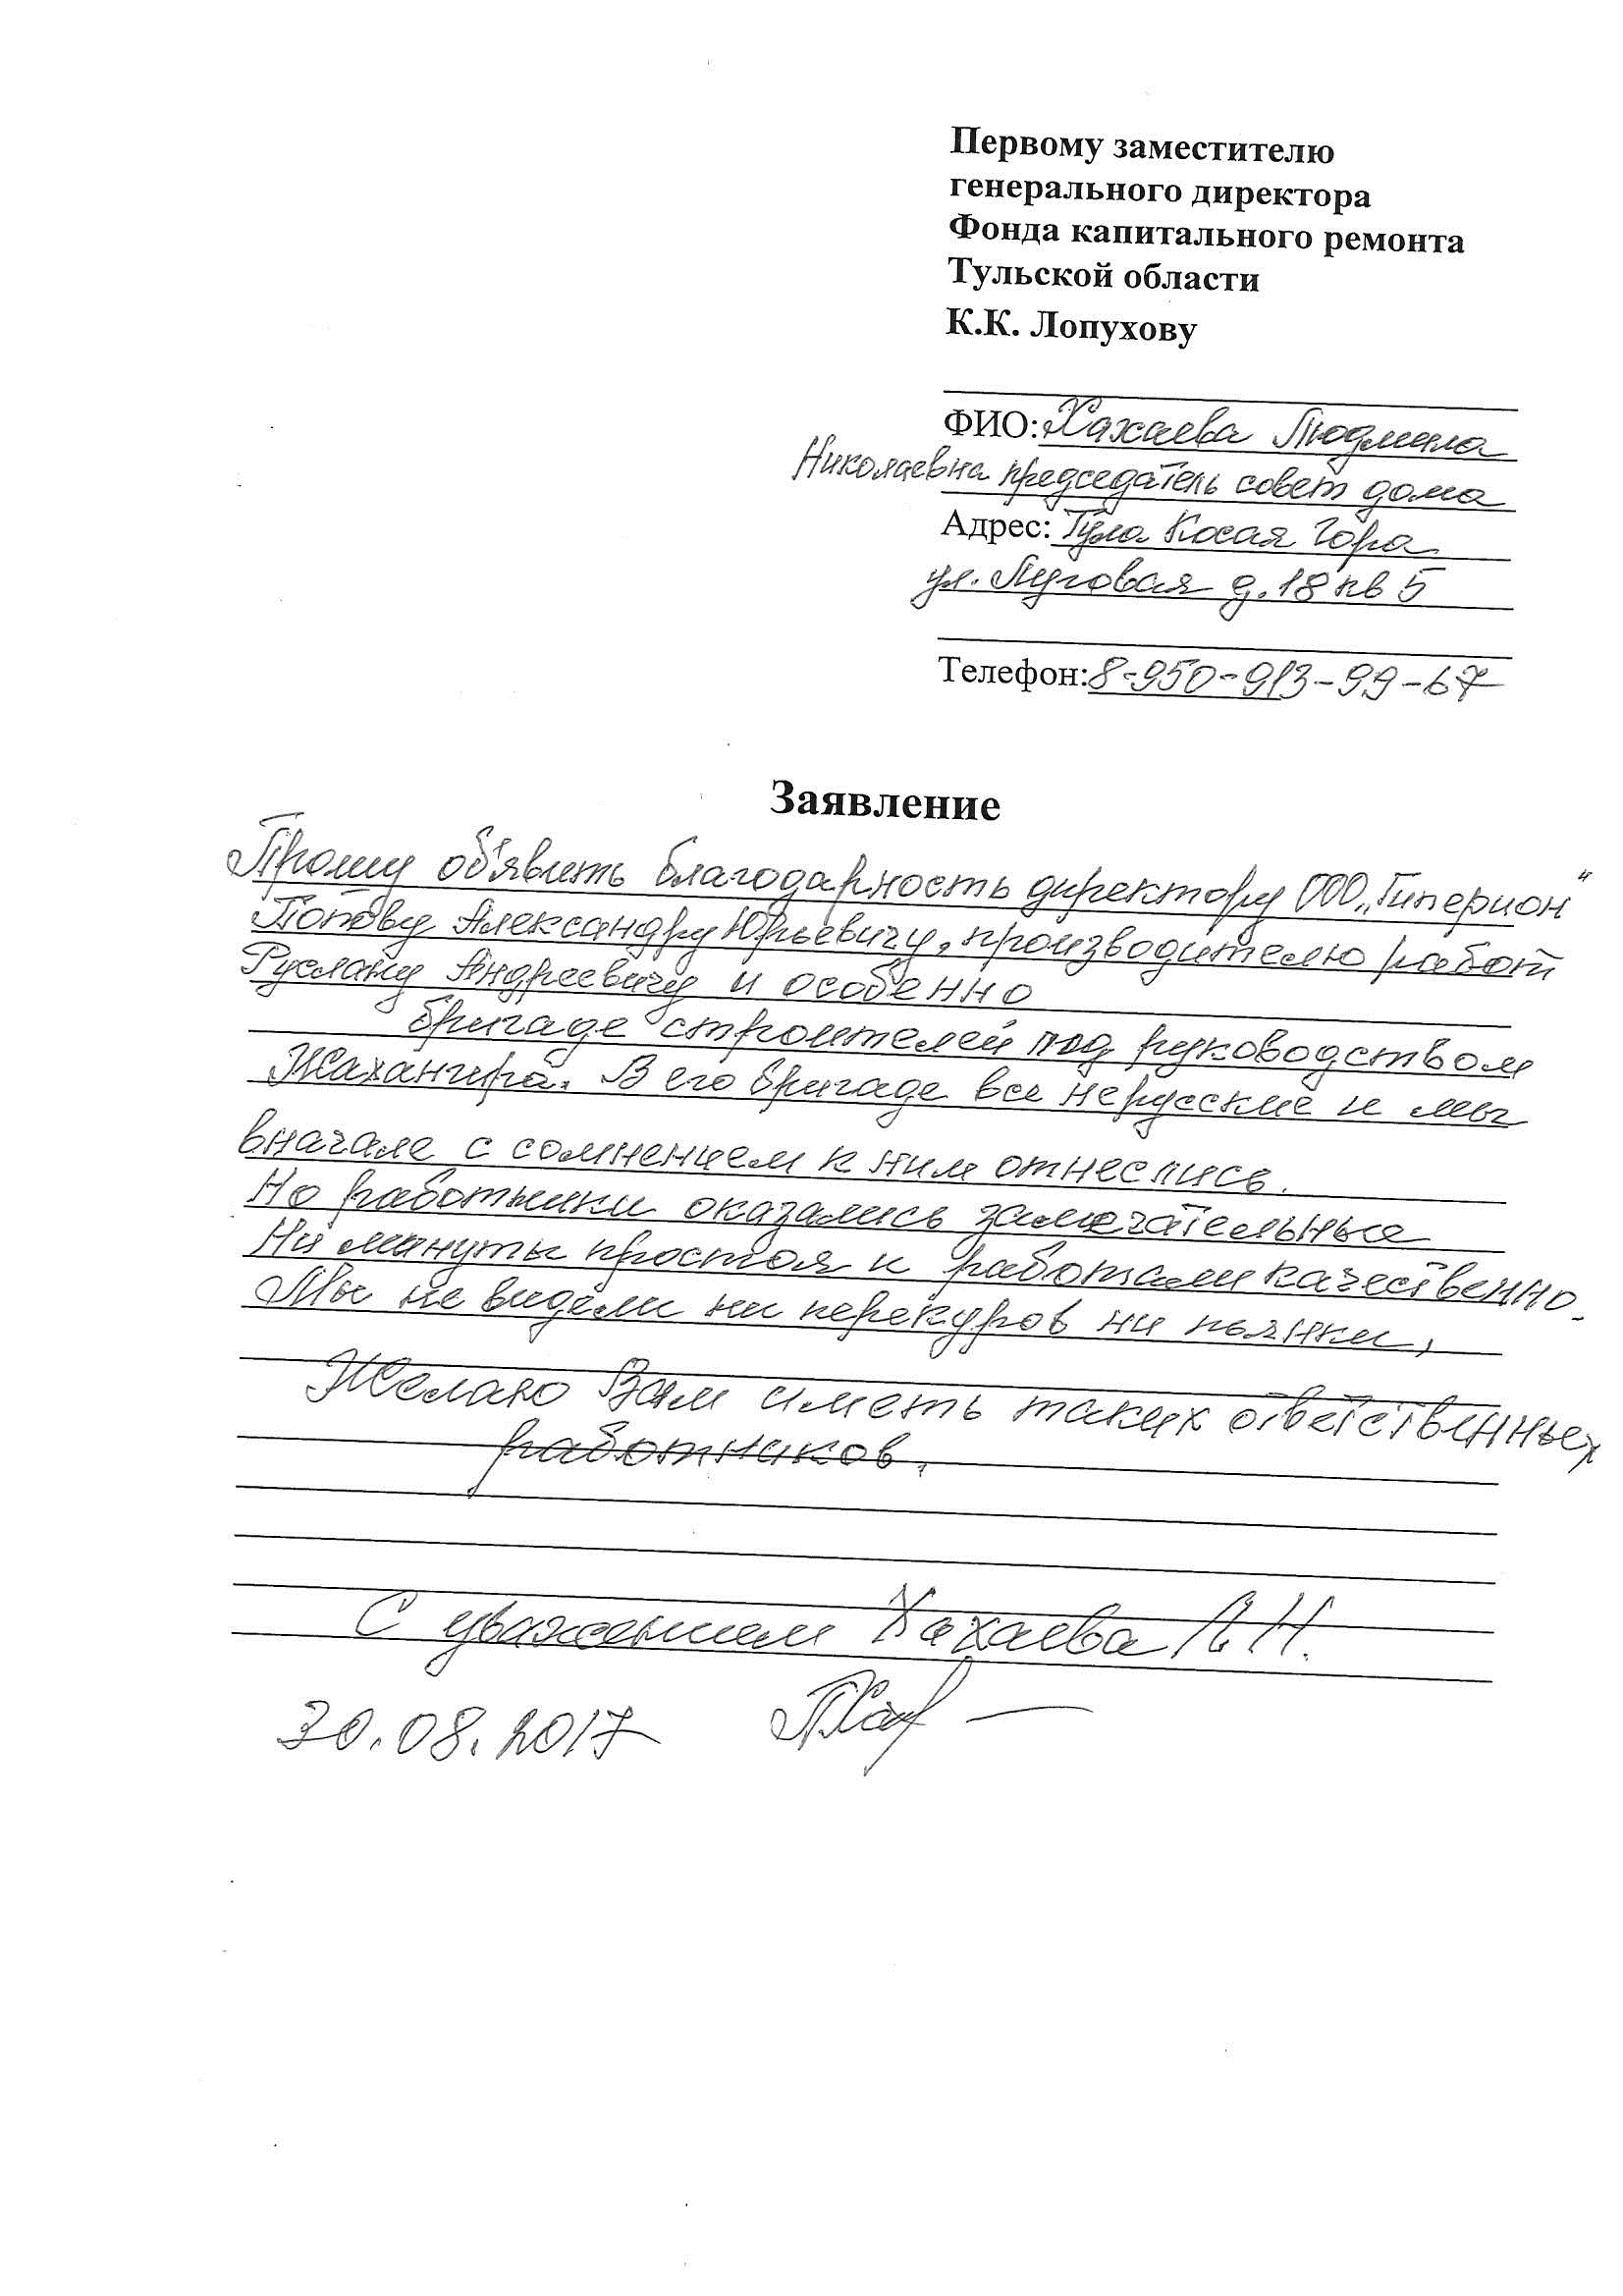 Первому заместителю
генерального директора
Фонда капитального ремонта
Тульской области
К.К. Лопухову
ФИО: Хахаева Людмила
Николаевна председатель совет дома
Адрес: Тула Косая Гора
ул. Луговая д. 18 кв 5
Телефон: 8-950-913-99-67
Заявление
Прошу объявить благодарность директору ООО „Гиперион"
Попову Александру Юрьевичу, производителю работ
Руслану Андреевичу и особенно
бригаде строителей под руководством
Жахангира. В его бригаде все нерусские и мы
вначале с сомнением к ним отнеслись.
Но работники оказались замечательные
Ни минуты простоя и работали качественно.
Мы не видели ни перекуров ни пьянки,
Желаю Вам иметь таких ответственных
работников.
С уважением Хахаева Л.Н.
30.08.2017